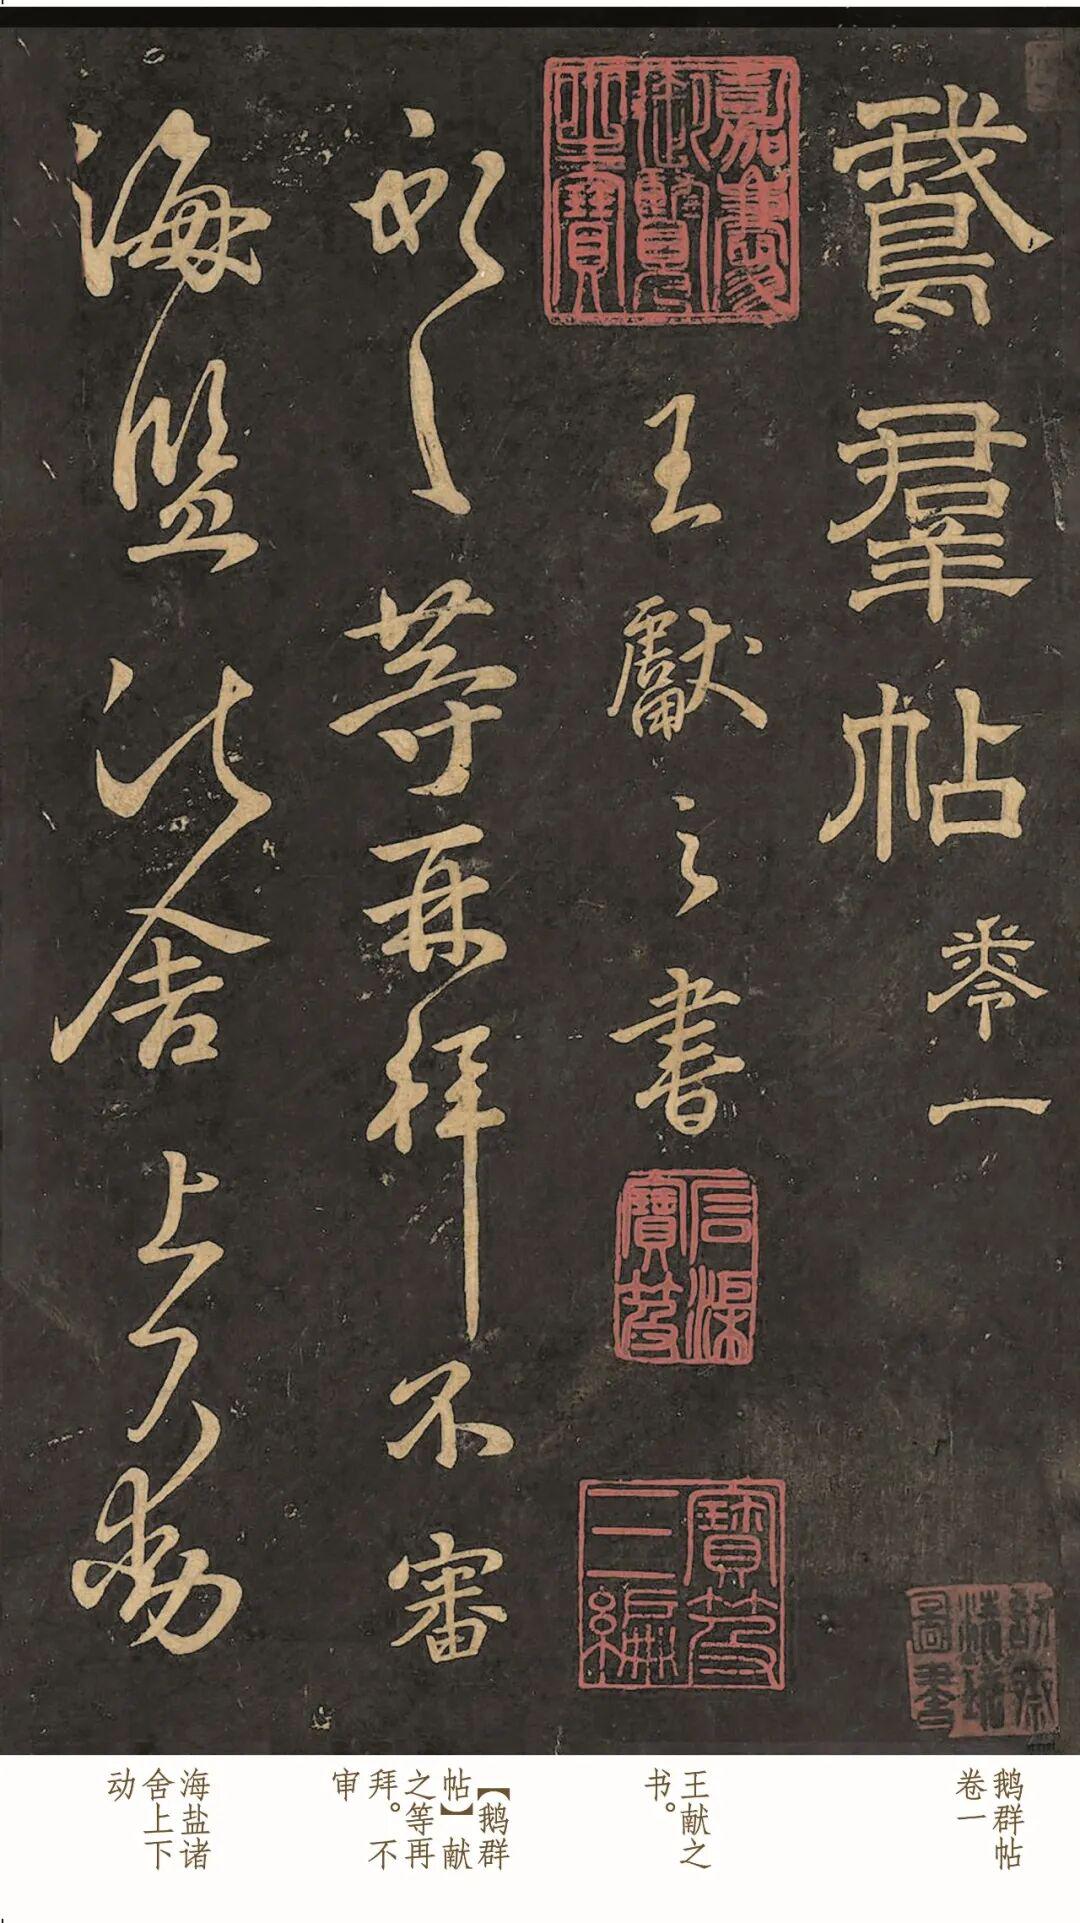 鵞羣帖卷一
嘉慶御覽之寶
王獻之書
石渠寶笈
寶笈三編
獻之等再拜不審
海鹽諸舍上下動
鹅群帖
卷一
王献之
书。
【鹅群
帖】献
之等再
拜。不
审
海盐诸
舍上下
动